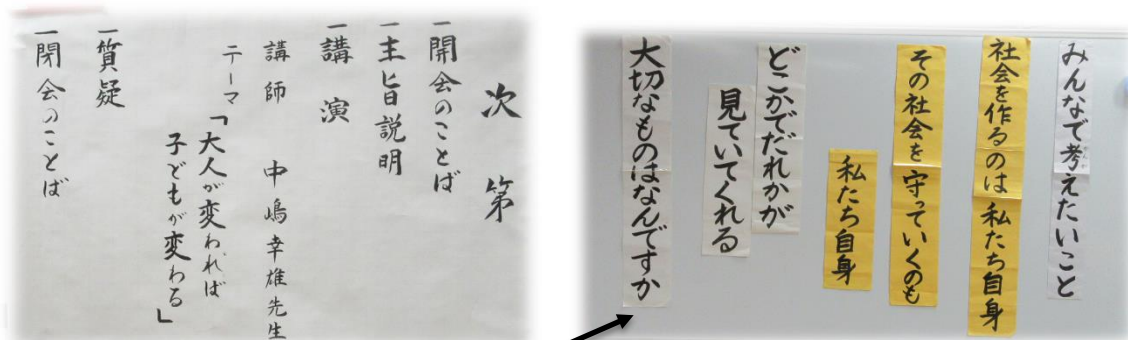 次第
一開会のことば
一主旨説明
一講演
講師 中嶋幸雄先生
テーマ「大人が変われば
子どもが変わる」
一質疑
一閉会のことば
みんなで考えたいこと
社会を作るのは私たち自身
その社会を守っていくのも
私たち自身
どこかでだれかが
見ていてくれる
大切なものはなんですか